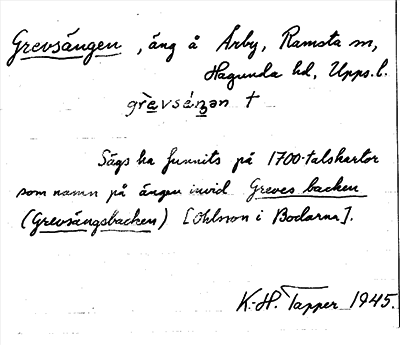 Grevsängen, äng å Årby, Ramsta sn,
Hagunda hd, Upps. l.
grèvsä́ŋən †
Sägs ha funnits på 1700-talskartor
som namn på ängen invid Greves backen
(Grevsängsbacken) [Ohlsson i Bodarna].
K.-H. Tapper 1945.